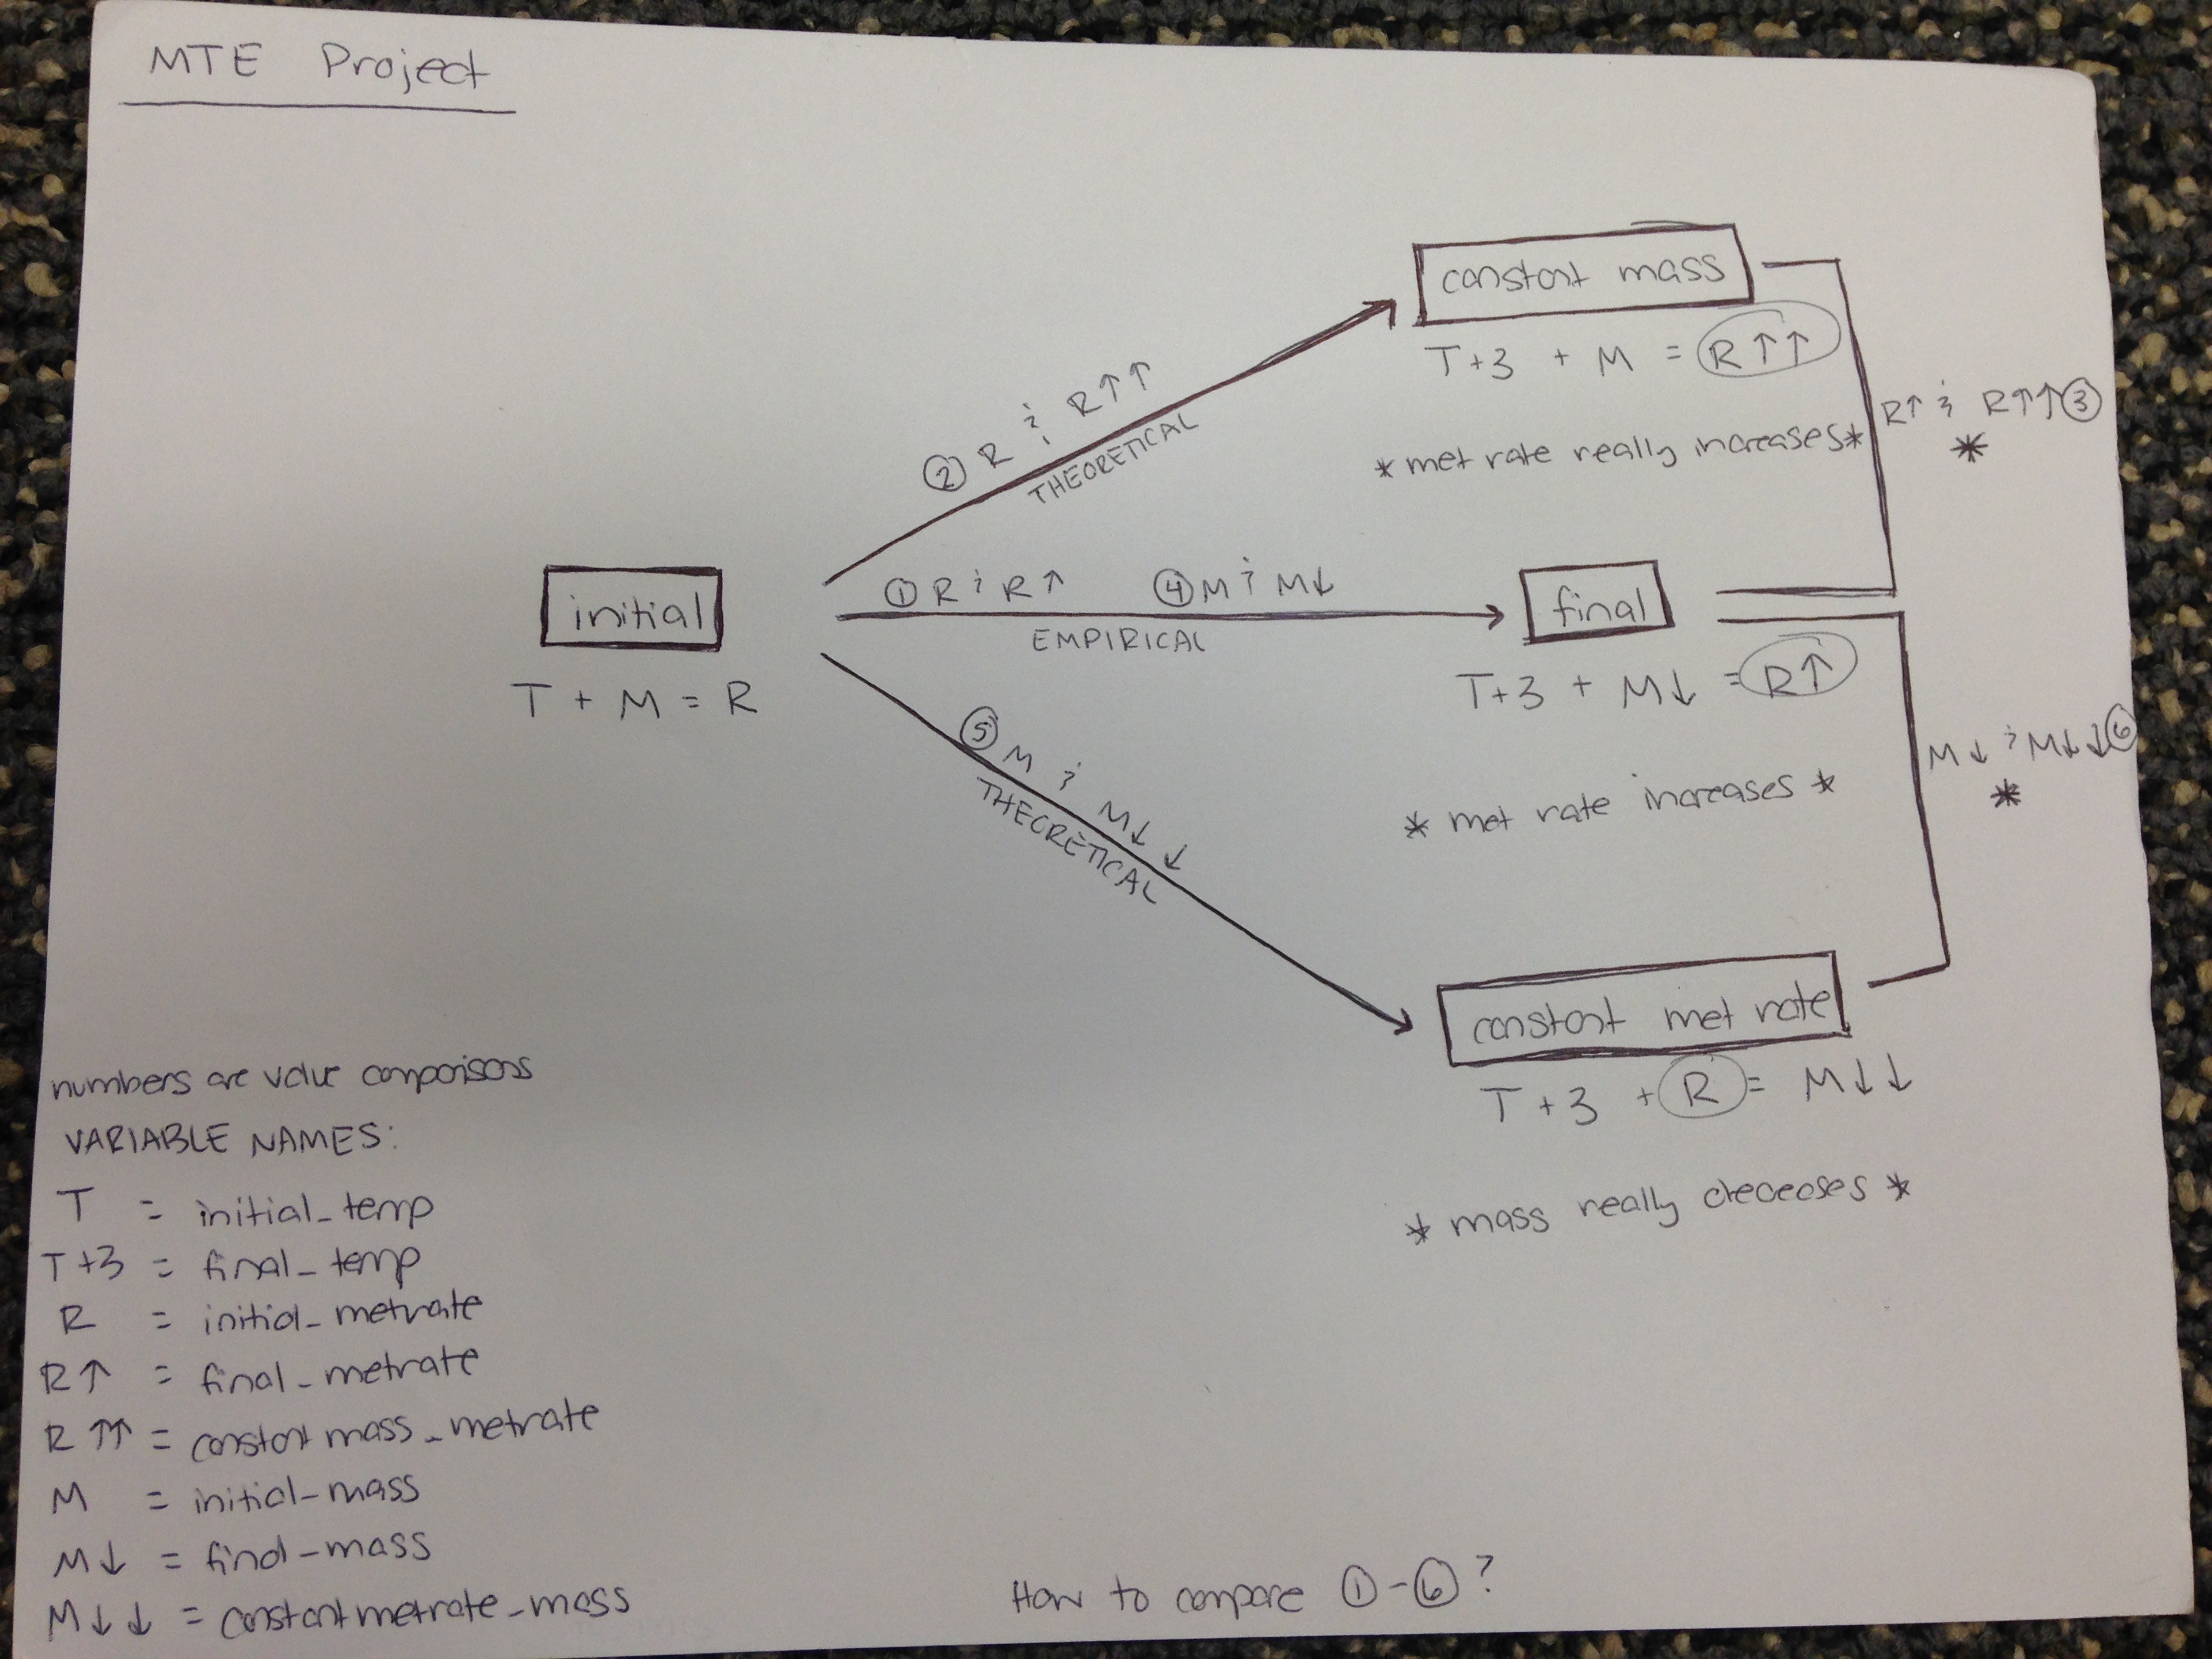 MTE Project
constant mass
T+3 + M = R↑↑
* met rate really increases *
R↑ & R↑↑ ③
*
② R & R↑↑
THEORETICAL
initial
T + M = R
① R & R↑ ④ M & M↓
EMPIRICAL
final
T+3 + M↓ = R↑
* met rate increases *
M↓ & M↓↓ ⑥
*
⑤ M & M↓↓
THEORETICAL
constant met rate
T+3 + R = M↓↓
* mass really decreases *
numbers are value comparisons
VARIABLE NAMES:
T = initial_temp
T+3 = final_temp
R = initial_metrate
R↑ = final_metrate
R↑↑ = constantmass_metrate
M = initial_mass
M↓ = final_mass
M↓↓ = constantmetrate_mass
How to compare ①-⑥?